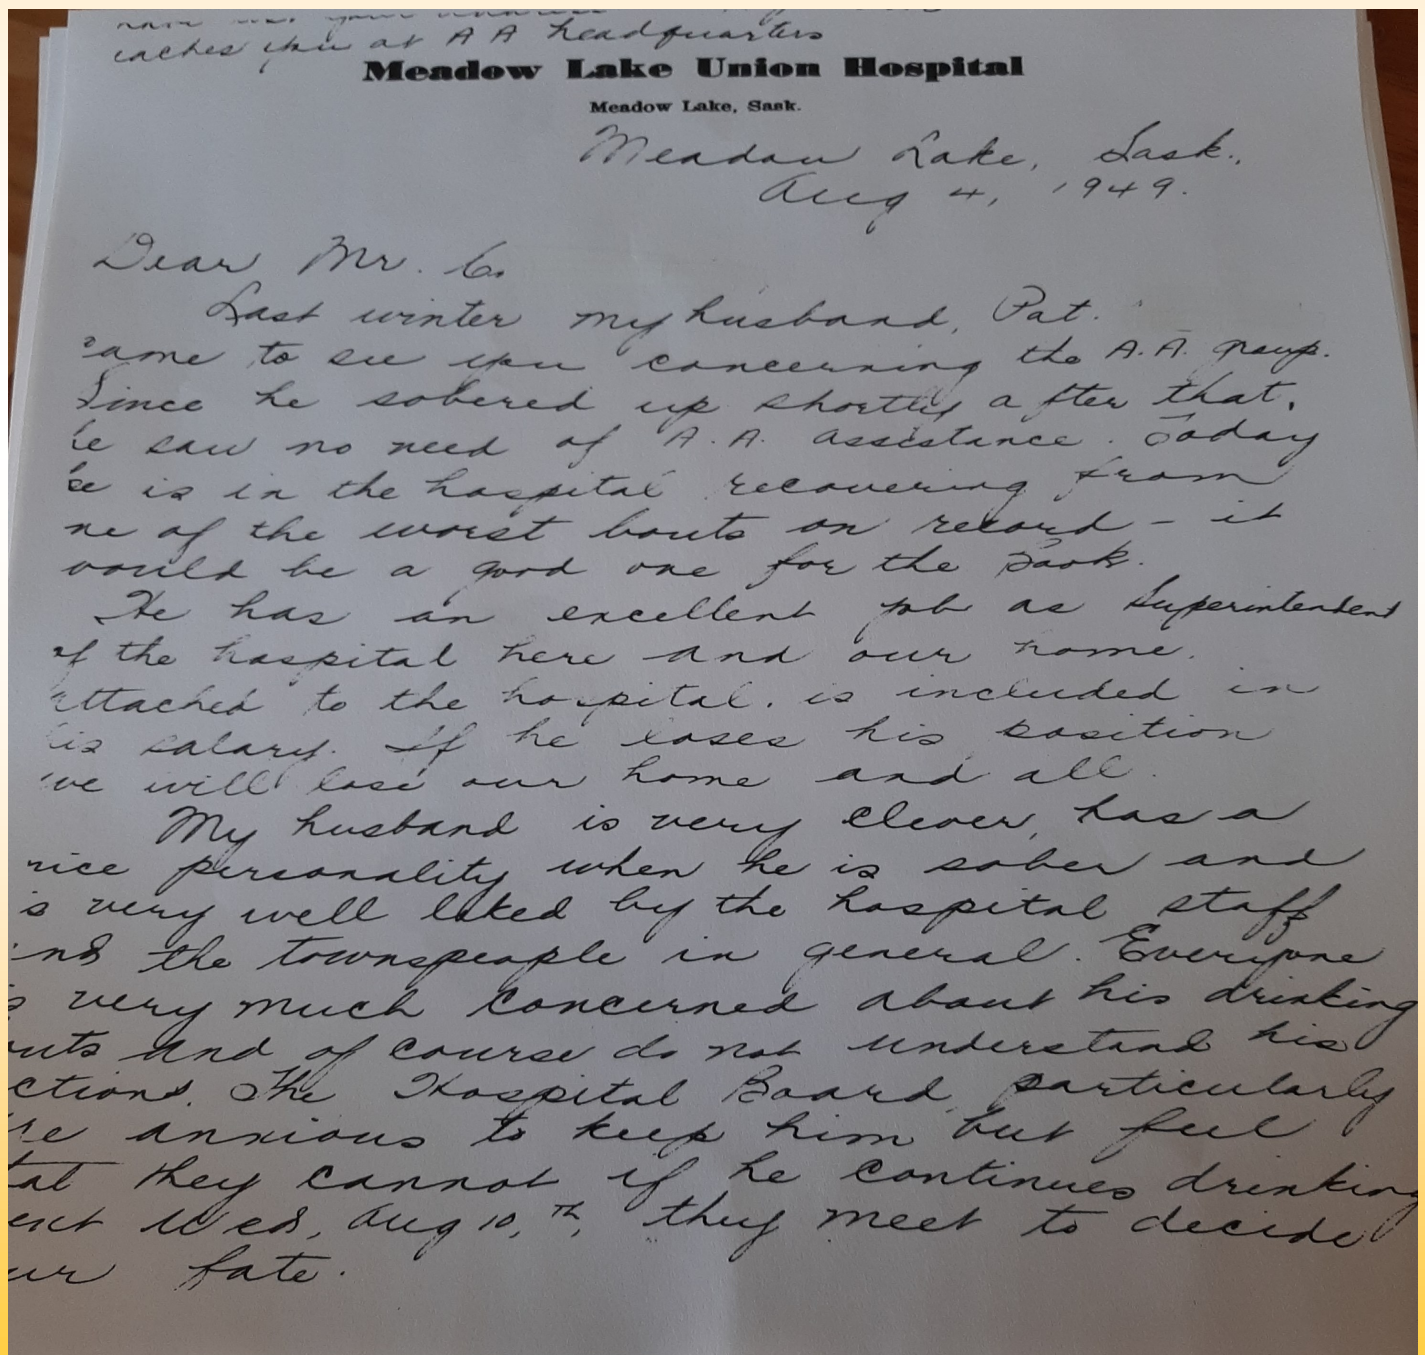 have us. your
eaches you at A A headquarters
Meadow Lake Union Hospital
Meadow Lake, Sask.
Meadow Lake, Sask.,
Aug 4, 1949.
Dear Mr. C.
Last winter my husband, Pat.
came to see you concerning the A.A. group.
Since he sobered up shortly after that,
he saw no need of A.A. assistance. Today
he is in the hospital recovering from
ne of the worst bouts on record - it
would be a good one for the book.
He has an excellent job as Superintendent
of the hospital here and our home.
attached to the hospital. is included in
his salary. If he loses his position
we will lose our home and all.
My husband is very clever, has a
nice personality when he is sober and
is very well liked by the hospital staff
and the townspeople in general. Everyone
s very much concerned about his drinking
outs and of course do not understand his
ctions. The Hospital Board, particularly
re anxious to keep him but feel
tat they cannot if he continues drinking
ext Wed, Aug 10,th, they meet to decide
ur fate.